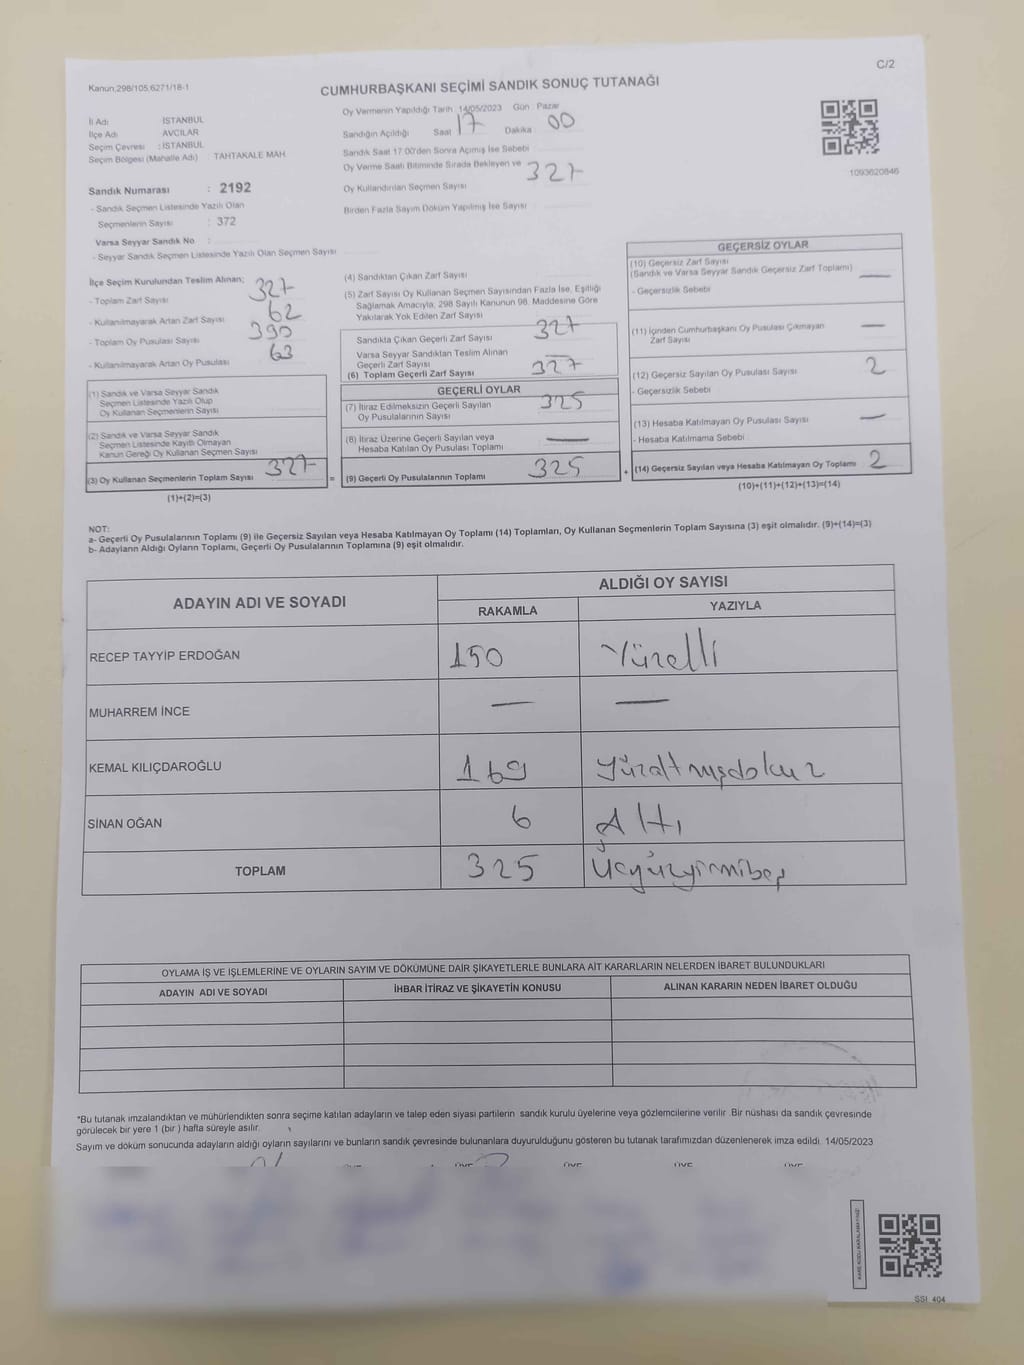 C/2
Kanun,298/105,6271/18-1
CUMHURBAŞKANI SEÇİMİ SANDIK SONUÇ TUTANAĞI
İl Adı İSTANBUL
İlçe Adı AVCILAR
Seçim Çevresi : İSTANBUL
Seçim Bölgesi (Mahalle Adı) TAHTAKALE MAH.
Sandık Numarası : 2192
- Sandık Seçmen Listesinde Yazılı Olan
Seçmenlerin Sayısı : 372
Varsa Seyyar Sandık No :
- Seyyar Sandık Seçmen Listesinde Yazılı Olan Seçmen Sayısı
Oy Vermenin Yapıldığı Tarih 14/05/2023 Gün Pazar
Sandığın Açıldığı Saat 17 Dakika 00
Sandık Saat 17:00'den Sonra Açılmış İse Sebebi
Oy Verme Saati Bitiminde Sırada Bekleyen ve
Oy Kullandırılan Seçmen Sayısı 327
Birden Fazla Sayım Döküm Yapılmış İse Sayısı
1093620846
İlçe Seçim Kurulundan Teslim Alınan;
- Toplam Zarf Sayısı 327
- Kullanılmayarak Artan Zarf Sayısı 62
- Toplam Oy Pusulası Sayısı 390
- Kullanılmayarak Artan Oy Pusulası 63
(1) Sandık ve Varsa Seyyar Sandık
Seçmen Listesinde Yazılı Olup
Oy Kullanan Seçmenlerin Sayısı
(2) Sandık ve Varsa Seyyar Sandık
Seçmen Listesinde Kayıtlı Olmayan
Kanun Gereği Oy Kullanan Seçmen Sayısı
(3) Oy Kullanan Seçmenlerin Toplam Sayısı 327
(1)+(2)=(3)
(4) Sandıktan Çıkan Zarf Sayısı
(5) Zarf Sayısı Oy Kullanan Seçmen Sayısından Fazla İse, Eşitliği
Sağlamak Amacıyla, 298 Sayılı Kanunun 98. Maddesine Göre
Yakılarak Yok Edilen Zarf Sayısı
Sandıkta Çıkan Geçerli Zarf Sayısı 327
Varsa Seyyar Sandıktan Teslim Alınan
Geçerli Zarf Sayısı —
(6) Toplam Geçerli Zarf Sayısı 327
GEÇERLİ OYLAR
(7) İtiraz Edilmeksizin Geçerli Sayılan
Oy Pusulalarının Sayısı 325
(8) İtiraz Üzerine Geçerli Sayılan veya
Hesaba Katılan Oy Pusulası Toplamı —
= (9) Geçerli Oy Pusulalarının Toplamı 325
GEÇERSİZ OYLAR
(10) Geçersiz Zarf Sayısı
(Sandık ve Varsa Seyyar Sandık Geçersiz Zarf Toplamı) —
- Geçersizlik Sebebi
(11) İçinden Cumhurbaşkanı Oy Pusulası Çıkmayan
Zarf Sayısı —
(12) Geçersiz Sayılan Oy Pusulası Sayısı 2
- Geçersizlik Sebebi
(13) Hesaba Katılmayan Oy Pusulası Sayısı —
- Hesaba Katılmama Sebebi :
+ (14) Geçersiz Sayılan veya Hesaba Katılmayan Oy Toplamı 2
(10)+(11)+(12)+(13)=(14)
NOT:
a- Geçerli Oy Pusulalarının Toplamı (9) ile Geçersiz Sayılan veya Hesaba Katılmayan Oy Toplamı (14) Toplamları, Oy Kullanan Seçmenlerin Toplam Sayısına (3) eşit olmalıdır. (9)+(14)=(3)
b- Adayların Aldığı Oyların Toplamı, Geçerli Oy Pusulalarının Toplamına (9) eşit olmalıdır.
ADAYIN ADI VE SOYADI
ALDIĞI OY SAYISI
RAKAMLA YAZIYLA
RECEP TAYYİP ERDOĞAN 150 Yüzelli
MUHARREM İNCE — —
KEMAL KILIÇDAROĞLU 169 Yüzaltmışdokuz
SİNAN OĞAN 6 Altı
TOPLAM 325 Üçyüzyirmibeş
OYLAMA İŞ VE İŞLEMLERİNE VE OYLARIN SAYIM VE DÖKÜMÜNE DAİR ŞİKAYETLERLE BUNLARA AİT KARARLARIN NELERDEN İBARET BULUNDUKLARI
ADAYIN ADI VE SOYADI İHBAR İTİRAZ VE ŞİKAYETİN KONUSU ALINAN KARARIN NEDEN İBARET OLDUĞU
*Bu tutanak imzalandıktan ve mühürlendikten sonra seçime katılan adayların ve talep eden siyasi partilerin sandık kurulu üyelerine veya gözlemcilerine verilir. Bir nüshası da sandık çevresinde
görülecek bir yere 1 (bir ) hafta süreyle asılır.
Sayım ve döküm sonucunda adayların aldığı oyların sayılarını ve bunların sandık çevresinde bulunanlara duyurulduğunu gösteren bu tutanak tarafımızdan düzenlenerek imza edildi. 14/05/2023
SSI 404